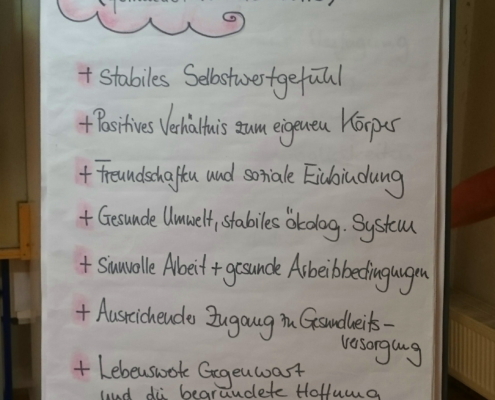 + Stabiles Selbstwertgefühl
+ Positives Verhältnis zum eigenen Körper
+ Freundschaften und soziale Einbindung
+ Gesunde Umwelt, stabiles ökolog. System
+ Sinnvolle Arbeit + gesunde Arbeitsbedingungen
+ Ausreichender Zugang zu Gesundheits-
versorgung
+ Lebenswerte Gegenwart
und die begründete Hoffnung